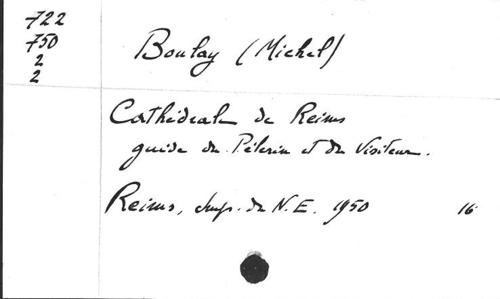 722
750
2
2
Boulay (Michel)
Cathédrale de Reims
guide du Pèlerin et du Visiteur.
Reims, Imp. du N.E. 1950 16